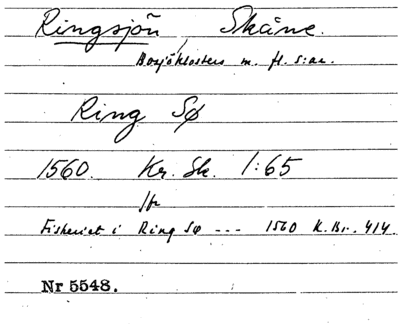 Ringsjön, Skåne.
Bosjöklosters m. fl. s:ar.
Ring Sø
1560. Kr. Sk. 1:65
Fisheriet i Ring Sø --- 1560 K. Br. 414.
Nr 5548.